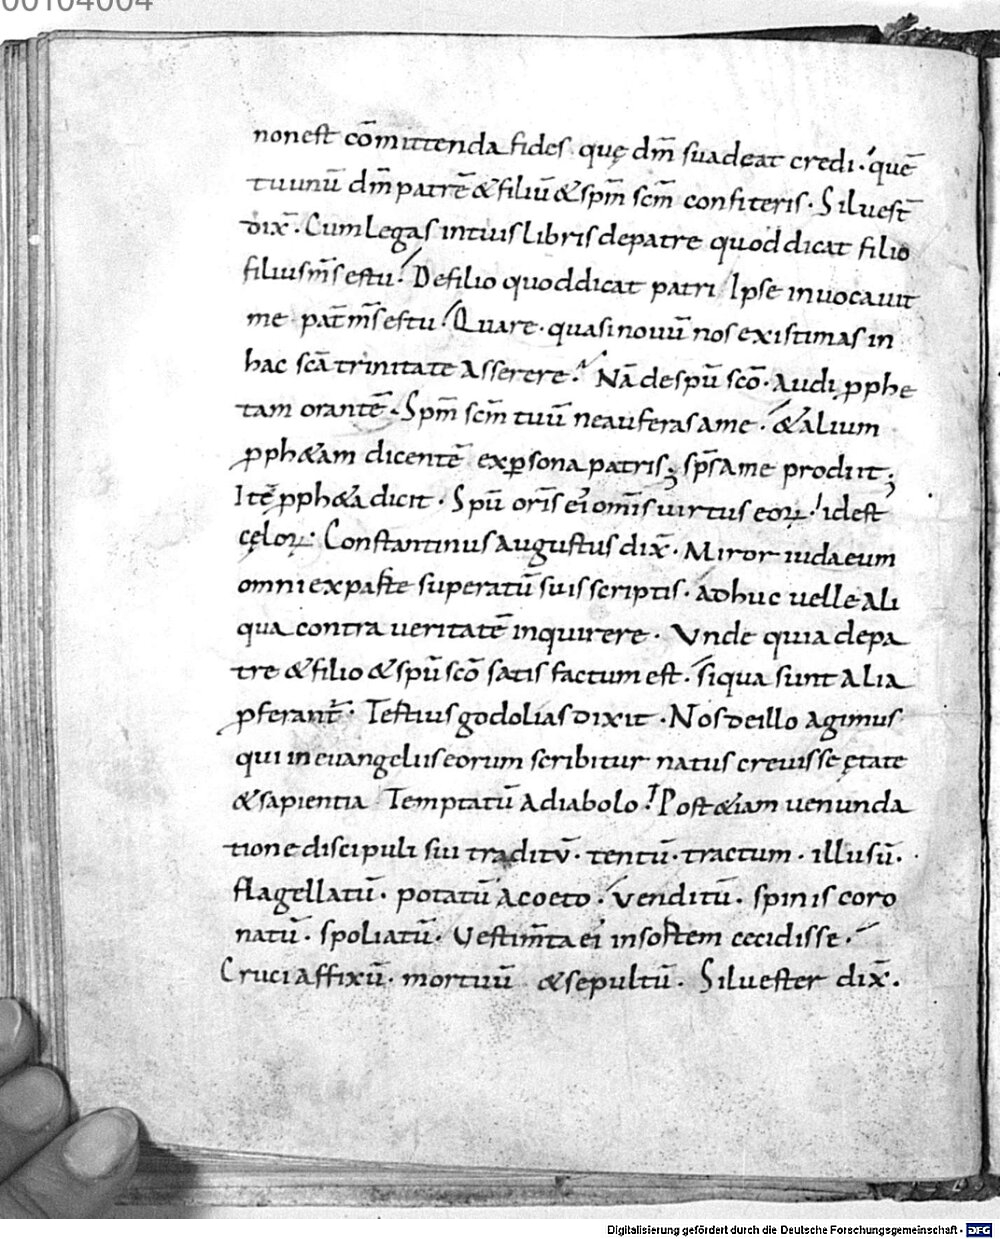 00104004
non est cōmittenda fides. quę dm̄ suadeat credi. quē
tu unū dm̄ patrē & filiū & spm̄ scm̄ confiteris. Siluest̄
dix̄. Cum legas in tuis libris de patre quod dicat filio
filius m̄s es tu. De filio quod dicat patri Ipse inuocauit
me pat̄ m̄s es tu. Quare quasi nouū nos existimas in
hac scā trinitate asserere. Nā de spū scō. Audi ꝓphe
tam orantē. Spm̄ scm̄ tuū ne auferas a me. & alium
ꝓph&am dicentē ex ꝑsona patris; sps̄ a me prodiit;
Itē ꝓph&a dicit. Spū oris̄ ei om̄is uirtus eoꝝ. id est
cęloꝝ. Constantinus augustus dix̄. Miror iudaeum
omni ex paste superatū suis scriptis. adhuc uelle ali
qua contra ueritatē inquirere. Vnde quia de pa
tre & filio & spū scō satis factum est. si qua sunt alia
ꝓferant̄. Testius godolias dixit. Nos de illo agimus
qui in euangeliis eorum scribitur natus creuisse ętate
& sapientia Temptatū a diabolo. Post &iam uenunda
tione discipuli sui traditū. tentū. tractum. illusū.
flagellatū. potatū acoeto. venditū. spinis coro
natū. spoliatū. Uestim̄ta ei in sortem cecidisse.
Cruci affixū. mortuū & sepultū. Siluester dix̄.
Digitalisierung gefördert durch die Deutsche Forschungsgemeinschaft - DFG